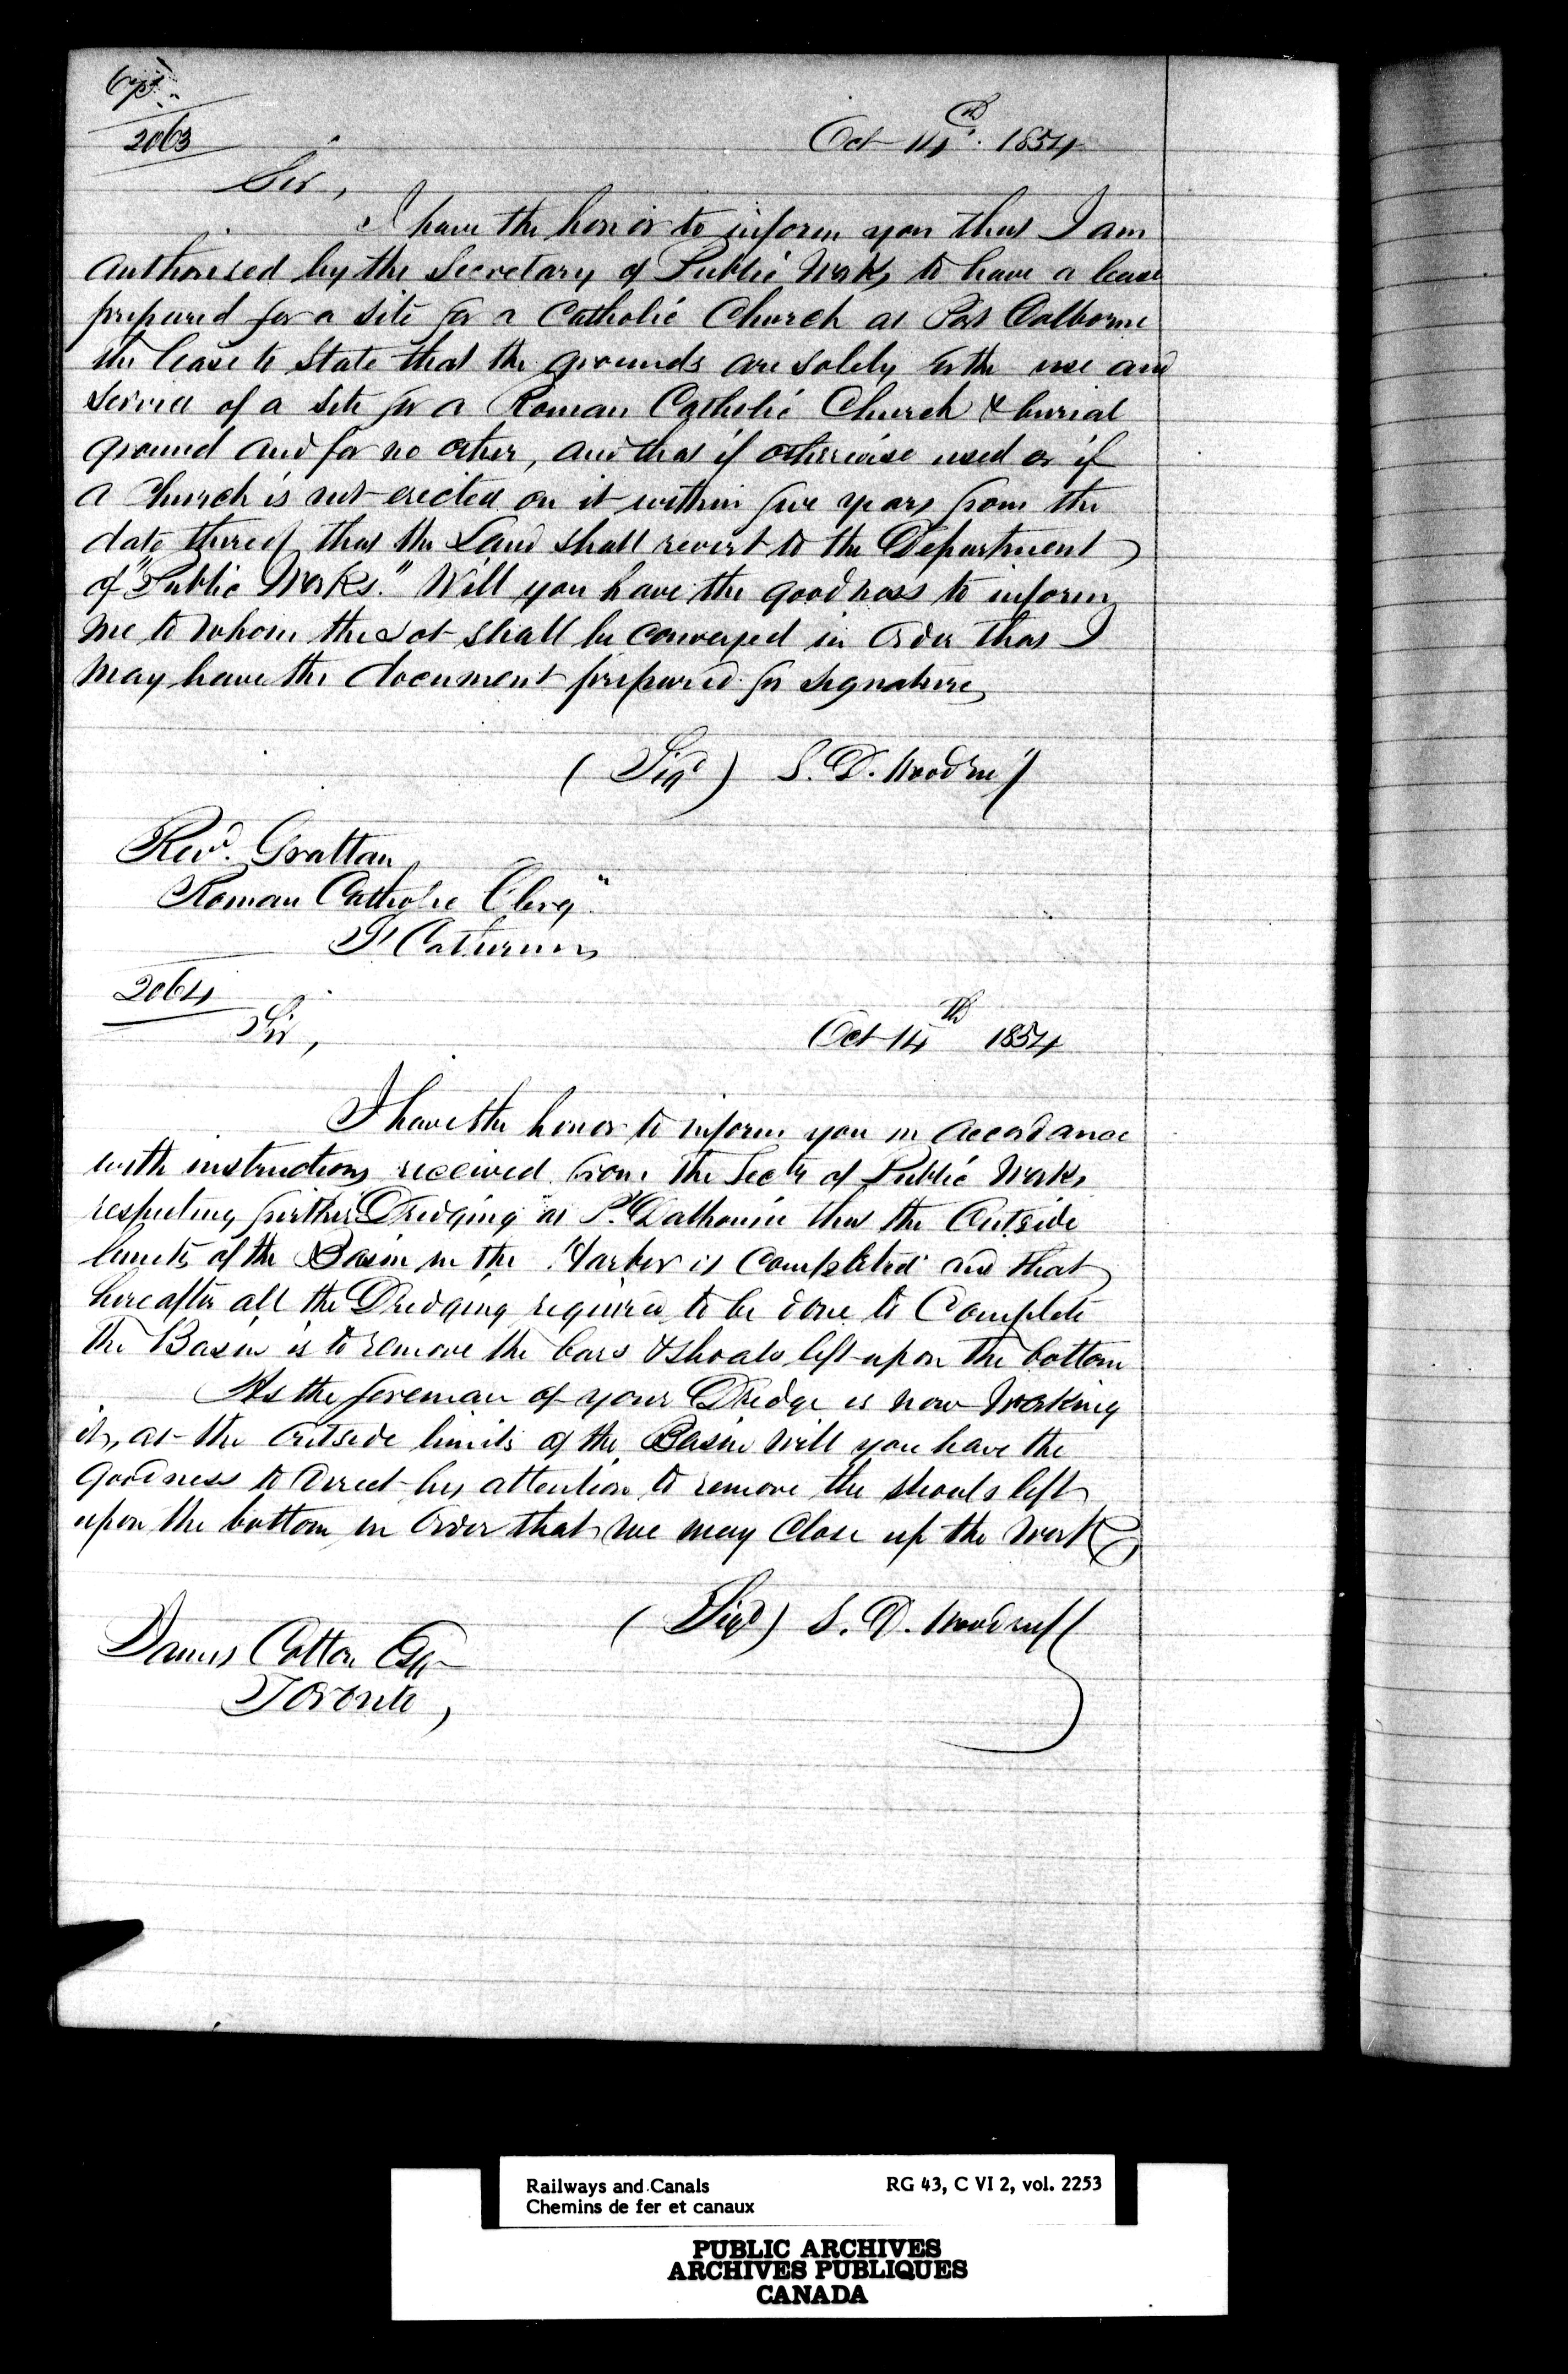 2063
Oct 14th. 1854
Sir,
I have the honor to inform you that I am
authorised by the Secretary of Public Works to have a lease
prepared for a site for a Catholic Church at Port Colborne
the lease to state that the grounds are solely for the use and
service of a site for a Roman Catholic Church & burial
ground and for no other, and that if otherwise used or if
a Church is not erected on it within five years from the
date thereof that the Land shall revert to the Department
of "Public Works." Will you have the goodness to inform
me to whom the Lot shall be conveyed in order that I
may have the document prepared for signature
(Sigd) S. D. Woodruff
Revd. Grattan
Roman Catholic Clergn
St Catherines
2064
Sir,
Oct 14th 1854
I have the honor to inform you in accordance
with instructions received from the Secty of Public Works
respecting further Dredging at Pt Dalhousie that the Outside
limits of the Basin in the Harbor is Completed and that
hereafter all the Dredging required to be done to Complete
the Basin is to remove the bars & shoals left upon the bottom
As the foreman of your Dredge is now working
it, at the outside limits of the Basin will you have the
goodness to direct his attention to remove the shoals left
upon the bottom in order that we may close up the work
(Sigd) S. D. Woodruff
James Cotton Esqr
Toronto,
Railways and Canals
Chemins de fer et canaux
RG 43, C VI 2, vol. 2253
PUBLIC ARCHIVES
ARCHIVES PUBLIQUES
CANADA